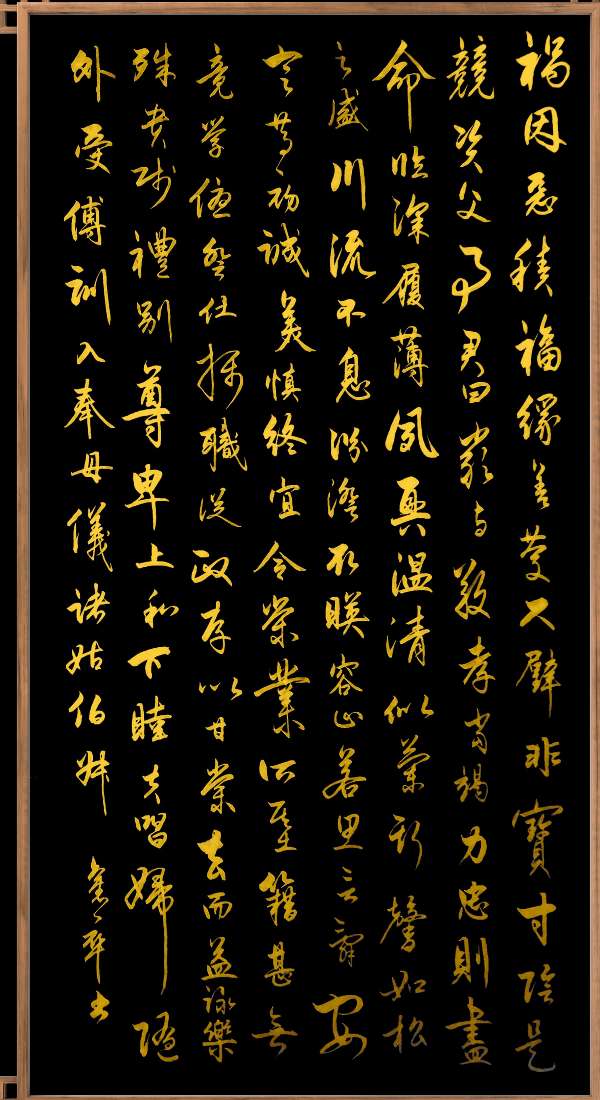 禍因惡積福緣善慶尺璧非寶寸陰是
競資父事君曰嚴與敬孝當竭力忠則盡
命臨深履薄夙興溫清似蘭斯馨如松
之盛川流不息淵澄取暎容止若思言辭安
定篤初誠美慎終宜令榮業所基籍甚無
竟學優登仕攝職從政存以甘棠去而益詠樂
殊貴賤禮別尊卑上和下睦夫唱婦隨
外受傅訓入奉母儀諸姑伯叔